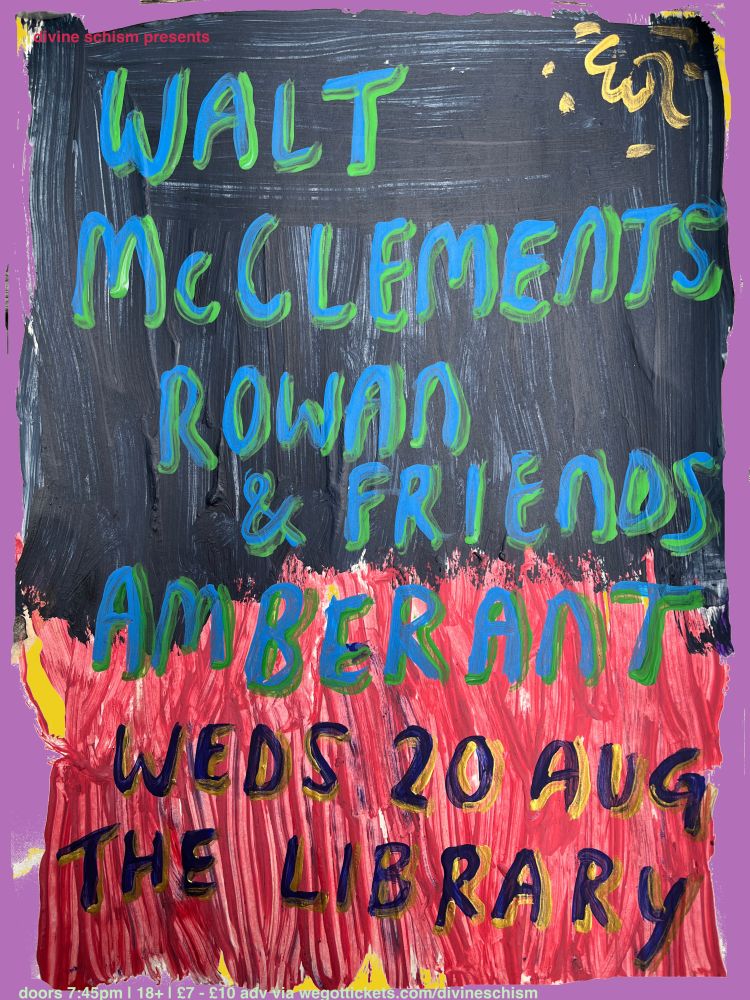 divine schism presents
WALT
McCLEMENTS
ROWAN
& FRIENDS
AMBERANT
WEDS 20 AUG
THE LIBRARY
doors 7:45pm | 18+ | £7 - £10 adv via wegottickets.com/divineschism